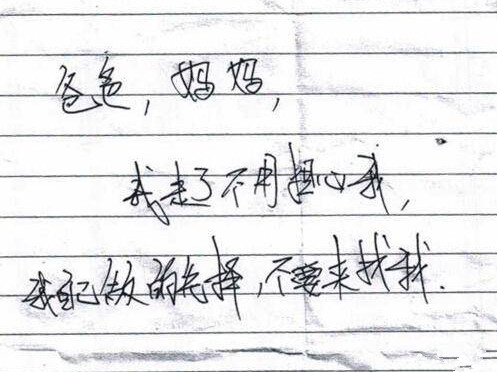 爸爸，妈妈，
我走了不用担心我，
我自己做的选择，不要来找我.